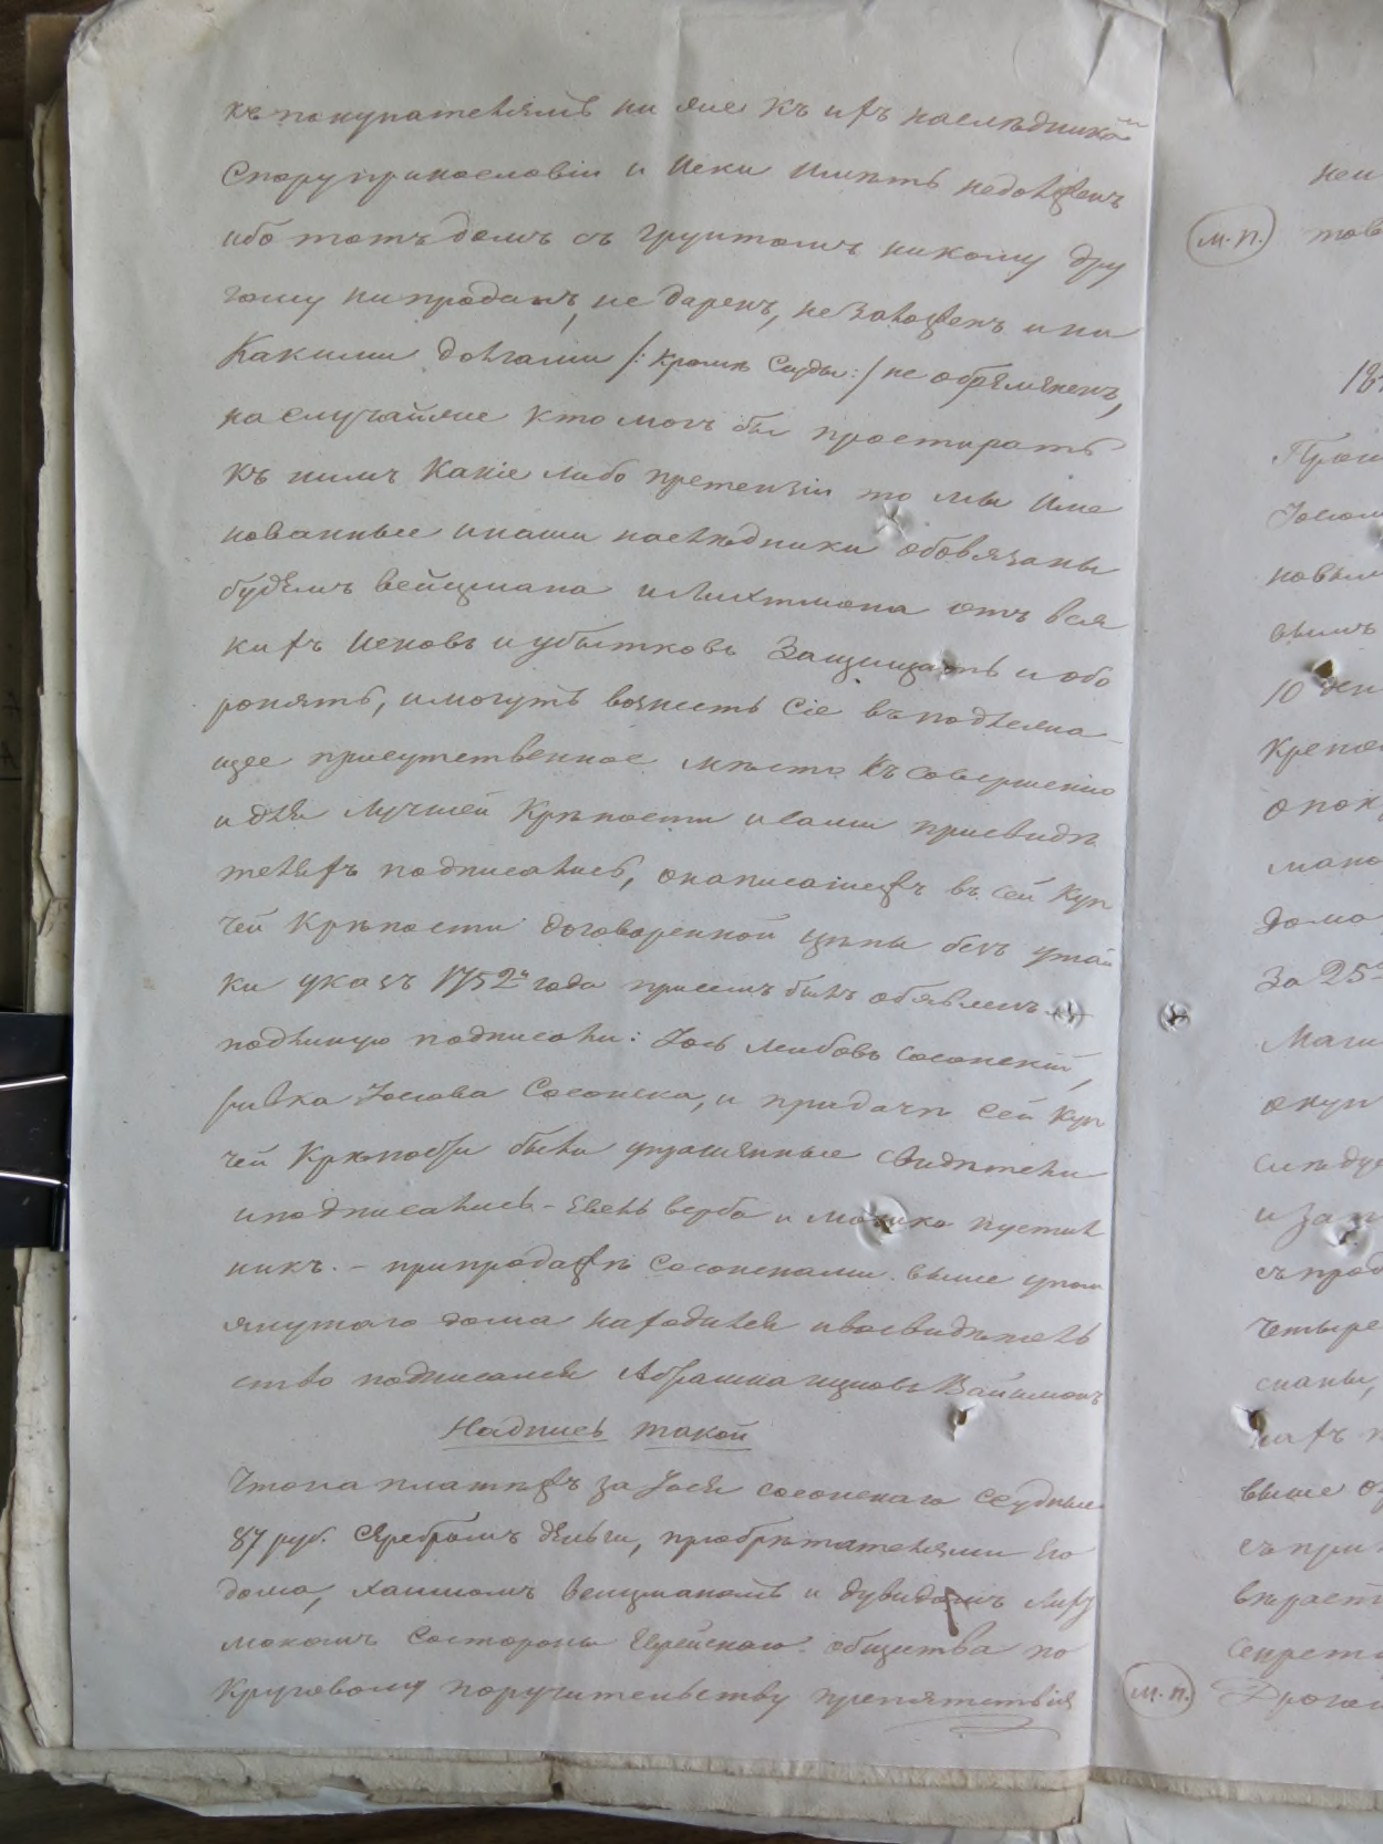 къ покупателямъ ни же къ ихъ наслѣдникамъ
спору прикословіи и иски имѣть недолжен
ибо тотъ домъ съ грунтомъ никому дру
гому ни проданъ, не даренъ, не заложенъ и ни
какими долгами /: кромѣ ссуды :/ не обремененъ,
на случай же кто могъ бы простирать
къ нимъ какіе либо претензіи то мы име
нованные и наши наслѣдники обовязаны
будемъ Вейцмана и Лихтмана отъ вся
кихъ исковъ и убытковъ защищать и обо
ронять, и могутъ вознесть сіе въ подлежа-
щее присутственное мѣсто къ совершенію
и для лучшей крѣпости и сами при свидѣ
теляхъ подписались, о написаніи въ сей куп
чей крѣпости договоренной цѣны безъ утай
ки указъ 1752 года при семъ былъ объявленъ
подлиную подписали: Іось Лейбовъ Сосонскій,
Ривка Іосіова Сосонска, и при дачѣ сей куп
чей крѣпости были упрошенные свидѣтели
и подписались - Евель Верба и Мошко Пустиль
никъ. - при продажѣ Сосонскими выше упом
янутого дома находился и во свидѣтель
ство подписался Абрашка Ицковъ Вайнманъ
Надпись такой
Что на платежъ за Іося Сосонскаго ссудные
87 руб. серебромъ деньги, пріобрѣтателями его
дома, Хаимомъ Вейцманомъ и Дувидомъ Лихт
маномъ состороны Еврейского общества по
круговому поручительству препятствія
нен
М. П.
тов
18
Прои
новы
вымъ
10 ден
крепос
о пок
мано
дома
За 25
Маги
окуп
слѣдуе
и зап
съ прод
четыре
сказы,
ихъ
выше о
съ при
вѣраст
секрет
М. П.